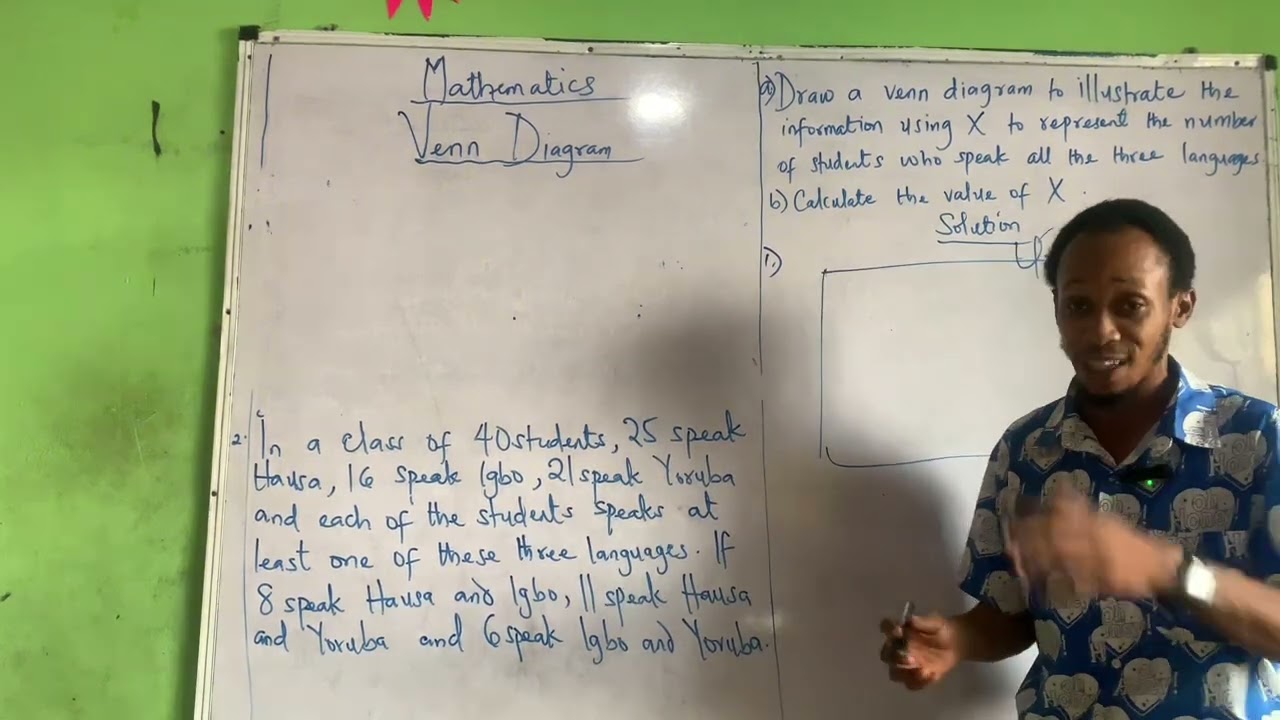 Mathematics
Venn Diagram
2. In a class of 40 students, 25 speak
Hausa, 16 speak Igbo, 21 speak Yoruba
and each of the students speaks at
least one of these three languages. If
8 speak Hausa and Igbo, 11 speak Hausa
and Yoruba and 6 speak Igbo and Yoruba.
a) Draw a venn diagram to illustrate the
information using X to represent the number
of students who speak all the three languages.
b) Calculate the value of X.
Solution
1)